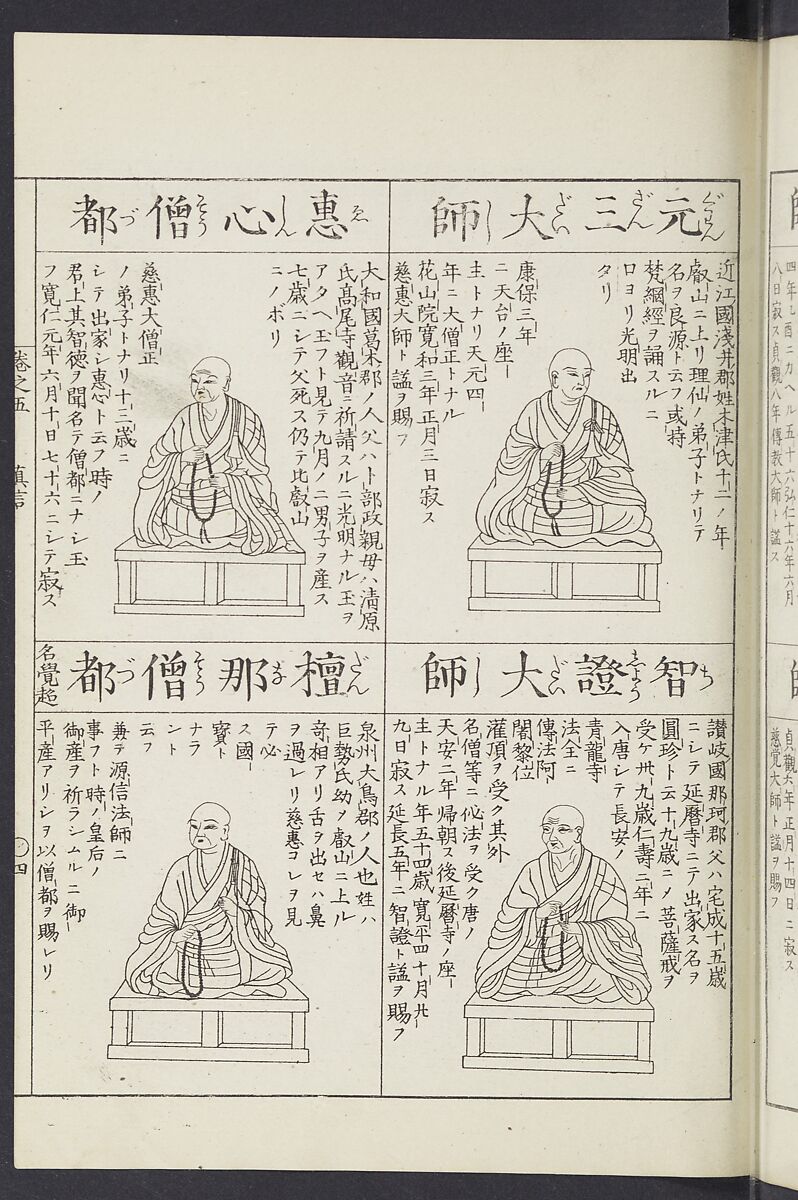 元三大師
ぐわん ざん だい し
近江國淺井郡姓木津氏十二ノ年
叡山ニ上リ理仙ノ弟子トナリテ
名ヲ良源ト云フ或特
梵綱經ヲ誦スルニ
口ヨリ光明出
タリ
康保三年
ニ天台ノ座一
主トナリ天元四一
年ニ大僧正トナル
花山院寛和三年正月三日寂ス
慈惠大師ト謚ヲ賜フ
惠心僧都
ゑ しん そう づ
大和國葛木郡ノ人父ハト部政親毋ハ清原
氏髙尾寺觀音ニ祈請スルニ光明ナル玉ヲ
アタヘ玉フト見テ九月ノニ男子ヲ産ス
七歳ニシテ父死ス仍テ比叡山
ニノボリ
慈惠大僧正
ノ弟子トナリ十三歳ニ
シテ出家シ惠心ト云フ時ノ
君上其智徳ヲ聞名テ僧都ニナシ玉
フ寛仁元年六月十日七十六ニシテ寂ス
智證大師
ち しよう だい し
讃岐國那珂郡父ハ宅成十五歳
ニシテ延暦寺ニテ出家ス名ヲ
圓珍ト云十九歳ニメ菩薩戒ヲ
受ケ卅九歳仁壽二年ニ
入唐シテ長安ノ
青龍寺
法全ニ
傳法阿一
闍黎位
灌頂ヲ受ク其外
名僧等ニ必法ヲ受ク唐ノ
天安二年帰朝ス後延暦寺ノ座一
主トナル年五十四歳寛平四十月廿一
九日寂ス延長五年ニ智證ト謚ヲ賜フ
檀那僧都
だん な そう づ
名覺超
泉州大鳥郡ノ人也姓ハ
巨勢氏幼ヲ叡山ニ上ル
竒相アリ舌ヲ出セハ鼻
ヲ過レリ慈惠コレヲ見
テ必
ス國一
寳ト
ナラ
ント
云フ
兼テ源信法師ニ
事フト時ノ皇后ノ
御産ヲ祈ラシムルニ御一
平産アリシヲ以僧都ヲ賜レリ
卷之五
真言
四
四年乙酉ニカヘル五十六弘仁十六年六月
八日寂ス貞觀八年傳教大師ト謚ス
貞觀六年正月十四日ニ寂ス
慈覺大師ト謚ヲ賜フ